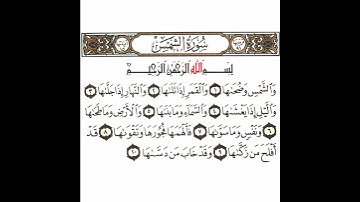 سورة الشمس
بسم الله الرحمن الرحيم
والشمس وضحىها ١ والقمر إذا تلىها ٢ والنهار إذا جلىها ٣
واليل إذا يغشىها ٤ والسماء وما بنىها ٥ والأرض وما طحىها
٦ ونفس وما سوىها ٧ فألهمها فجورها وتقوىها ٨ قد
أفلح من زكىها ٩ وقد خاب من دسىها ١٠